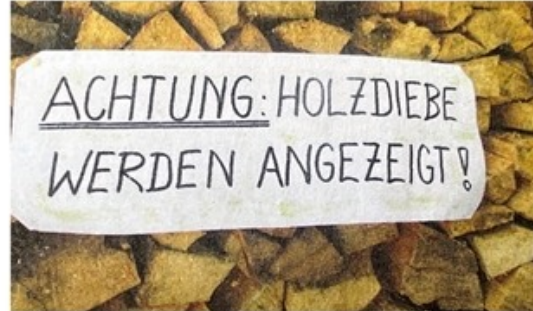 ACHTUNG: HOLZDIEBE
WERDEN ANGEZEIGT!